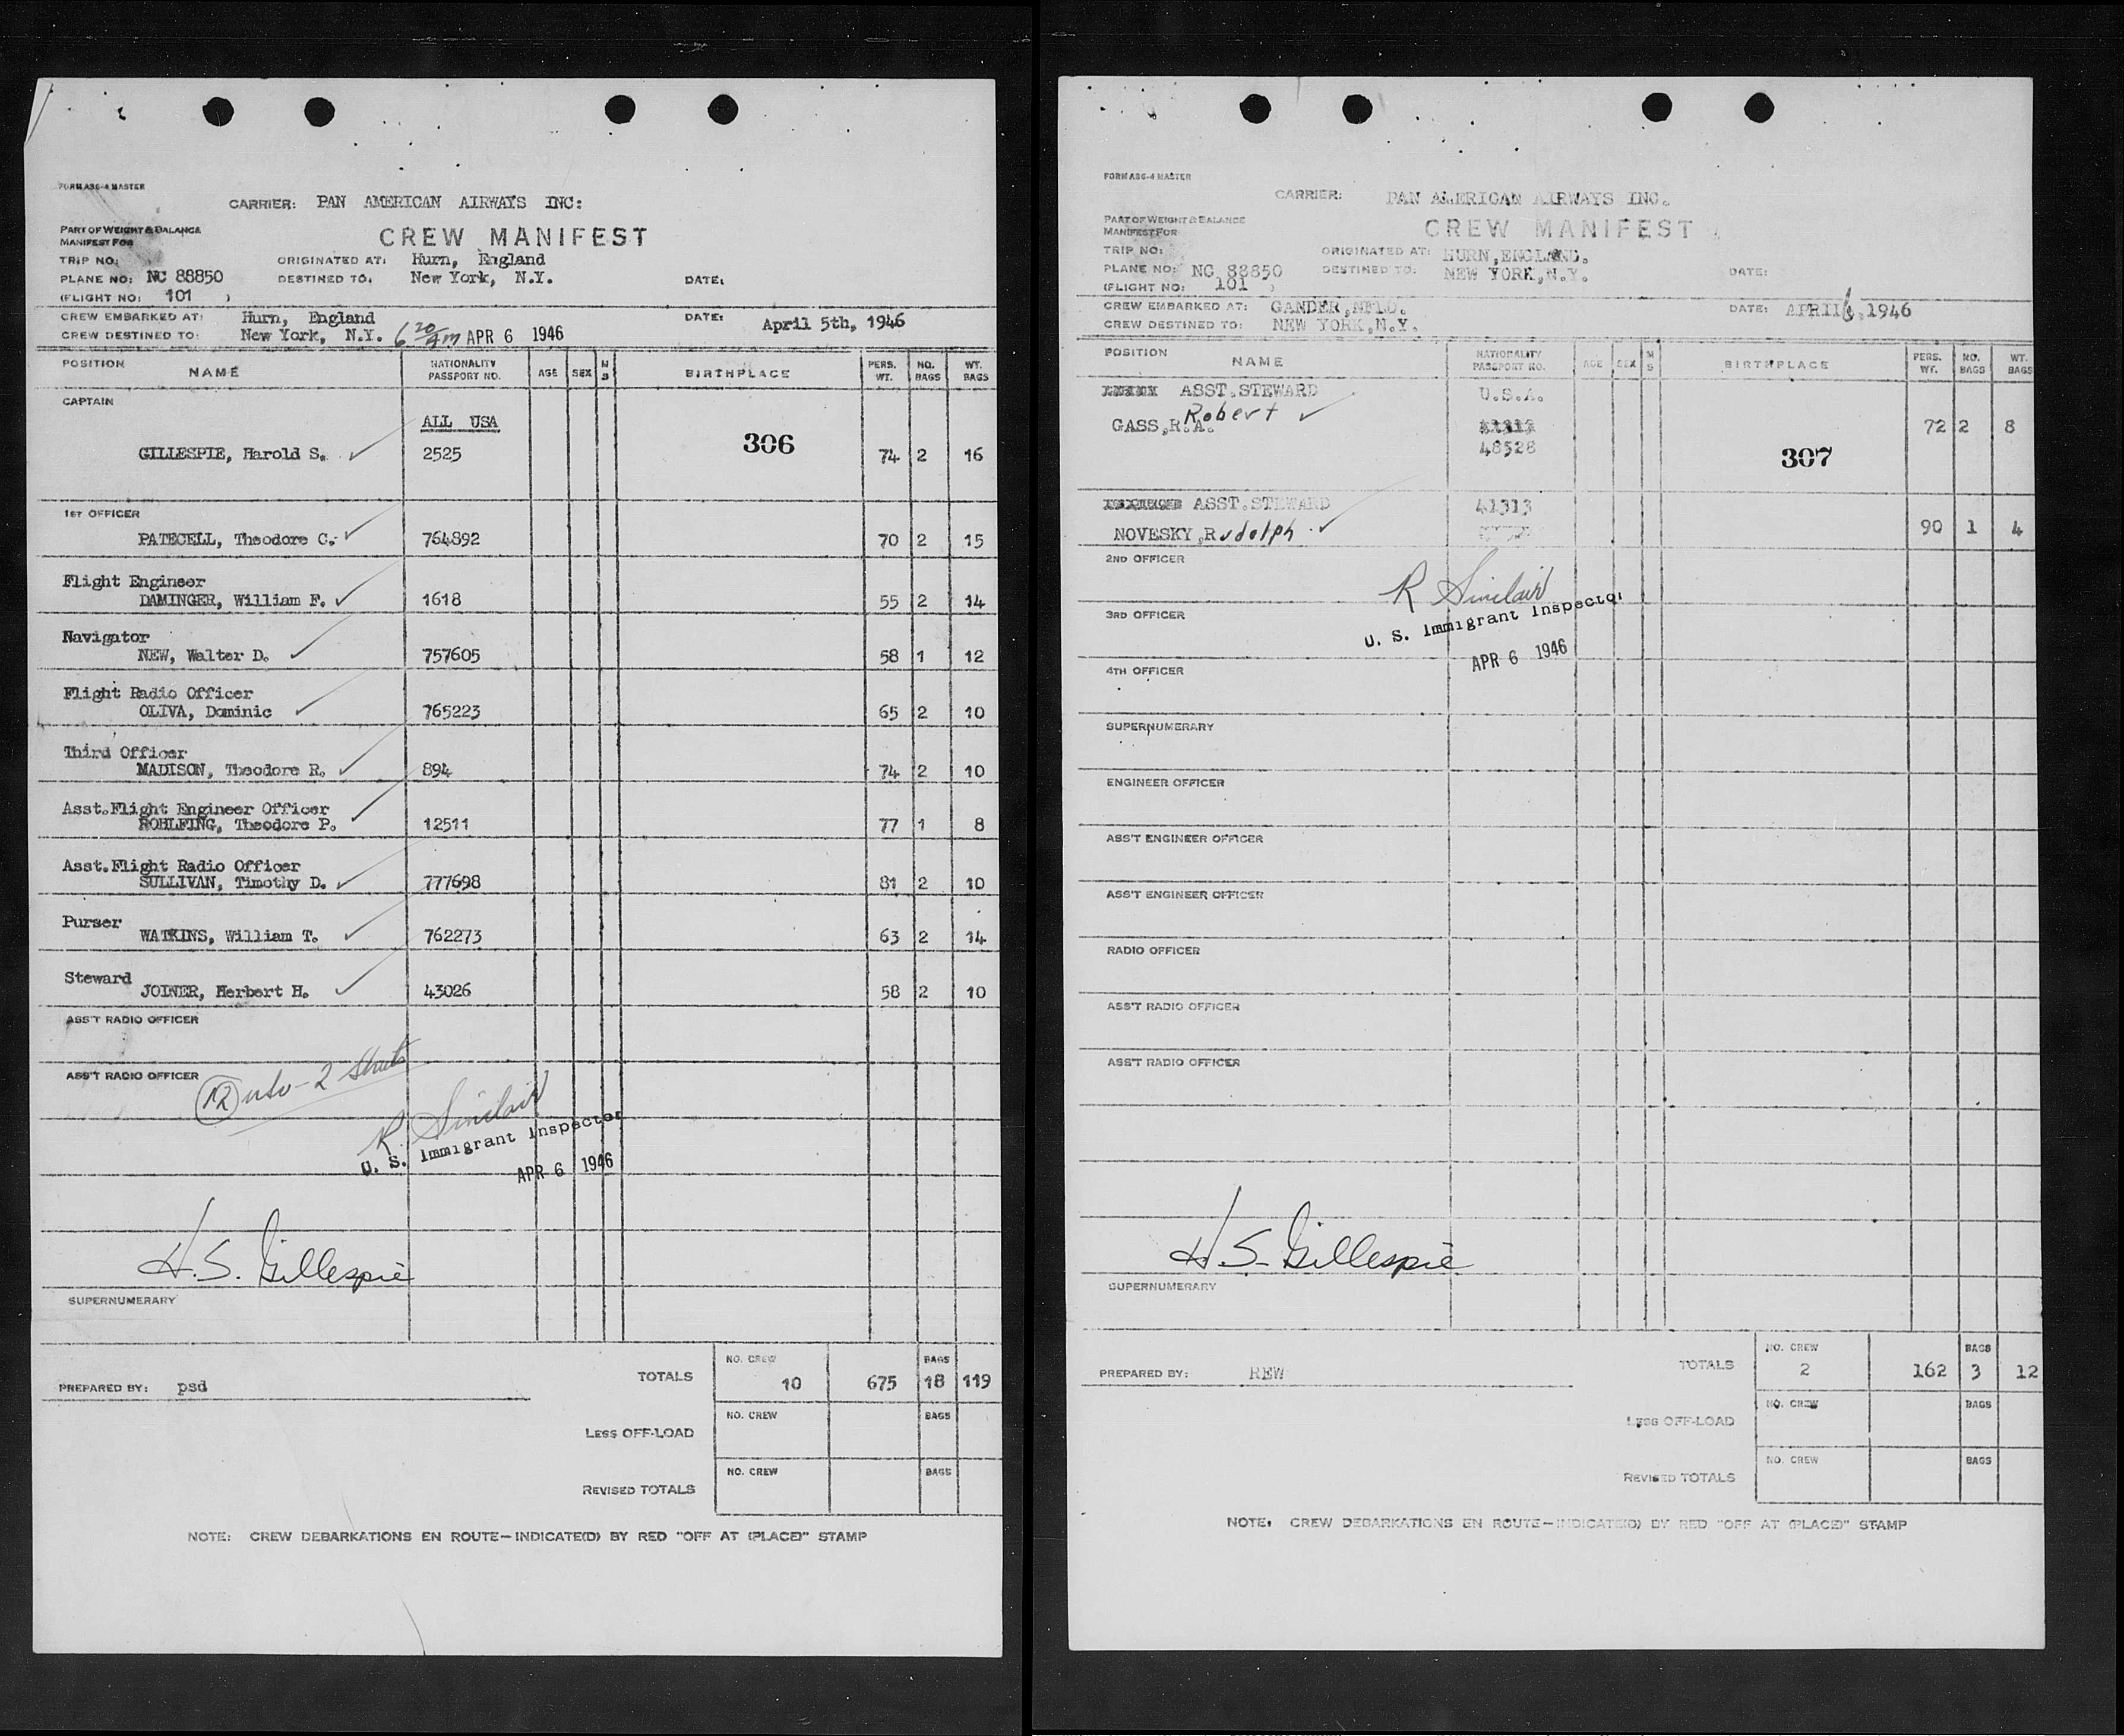 FORM A86-4 MASTER
CARRIER: PAN AMERICAN AIRWAYS INC:
PART OF WEIGHT & BALANCE
MANIFEST FOR
CREW MANIFEST
TRIP NO:
ORIGINATED AT: Hurn, England
PLANE NO: NC 88850
DESTINED TO. New York, N.Y.
DATE:
(FLIGHT NO: 101 )
CREW EMBARKED AT: Hurn, England
DATE: April 5th, 1946
CREW DESTINED TO: New York, N.Y. 6 20/AM APR 6 1946
POSITION NAME NATIONALITY PASSPORT NO. AGE SEX M S BIRTHPLACE PERS. WT. NO. BAGS WT. BAGS
CAPTAIN
ALL USA
306
GILLESPIE, Harold S. 2525 74 2 16
1ST OFFICER
PATECELL, Theodore C. 764892 70 2 15
Flight Engineer
DAMINGER, William F. 1618 55 2 14
Navigator
NEW, Walter D. 757605 58 1 12
Flight Radio Officer
OLIVA, Dominic 765223 65 2 10
Third Officer
MADISON, Theodore R. 894 74 2 10
Asst.Flight Engineer Officer
ROHLFING, Theodore P. 12511 77 1 8
Asst.Flight Radio Officer
SULLIVAN, Timothy D. 777698 81 2 10
Purser
WATKINS, William T. 762273 63 2 14
Steward
JOINER, Herbert H. 43026 58 2 10
ASS'T RADIO OFFICER
ASS'T RADIO OFFICER
12
R. Sinclair
U. S. Immigrant Inspector
APR 6 1946
H.S. Gillespie
SUPERNUMERARY
PREPARED BY: psd
TOTALS NO. CREW 10 675 BAGS 18 119
LESS OFF-LOAD NO. CREW BAGS
REVISED TOTALS NO. CREW BAGS
NOTE: CREW DEBARKATIONS EN ROUTE—INDICATE(D) BY RED "OFF AT (PLACE)" STAMP
FORM A86-4 MASTER
CARRIER: PAN AMERICAN AIRWAYS INC.
PART OF WEIGHT & BALANCE
MANIFEST FOR
CREW MANIFEST
TRIP NO:
ORIGINATED AT: HURN,ENGLAND.
PLANE NO: NC 88850
DESTINED TO: NEW YORK,N.Y.
DATE:
(FLIGHT NO: 101 )
CREW EMBARKED AT: GANDER,NFLD.
DATE: APRIL 6, 1946
CREW DESTINED TO: NEW YORK,N.Y.
POSITION NAME NATIONALITY PASSPORT NO. AGE SEX M S BIRTHPLACE PERS. WT. NO. BAGS WT. BAGS
ASST.STEWARD U.S.A.
GASS,R.A. Robert 41313 72 2 8
48528
307
ASST.STEWARD 41313
NOVESKY,Rudolph 90 1 4
2ND OFFICER
R Sinclair
U. S. Immigrant Inspector
3RD OFFICER
APR 6 1946
4TH OFFICER
SUPERNUMERARY
ENGINEER OFFICER
ASS'T ENGINEER OFFICER
ASS'T ENGINEER OFFICER
RADIO OFFICER
ASS'T RADIO OFFICER
ASS'T RADIO OFFICER
H.S. Gillespie
SUPERNUMERARY
PREPARED BY: REW
TOTALS NO. CREW 2 162 BAGS 3 12
LESS OFF-LOAD NO. CREW BAGS
REVISED TOTALS NO. CREW BAGS
NOTE: CREW DEBARKATIONS EN ROUTE—INDICATE(D) BY RED "OFF AT (PLACE)" STAMP